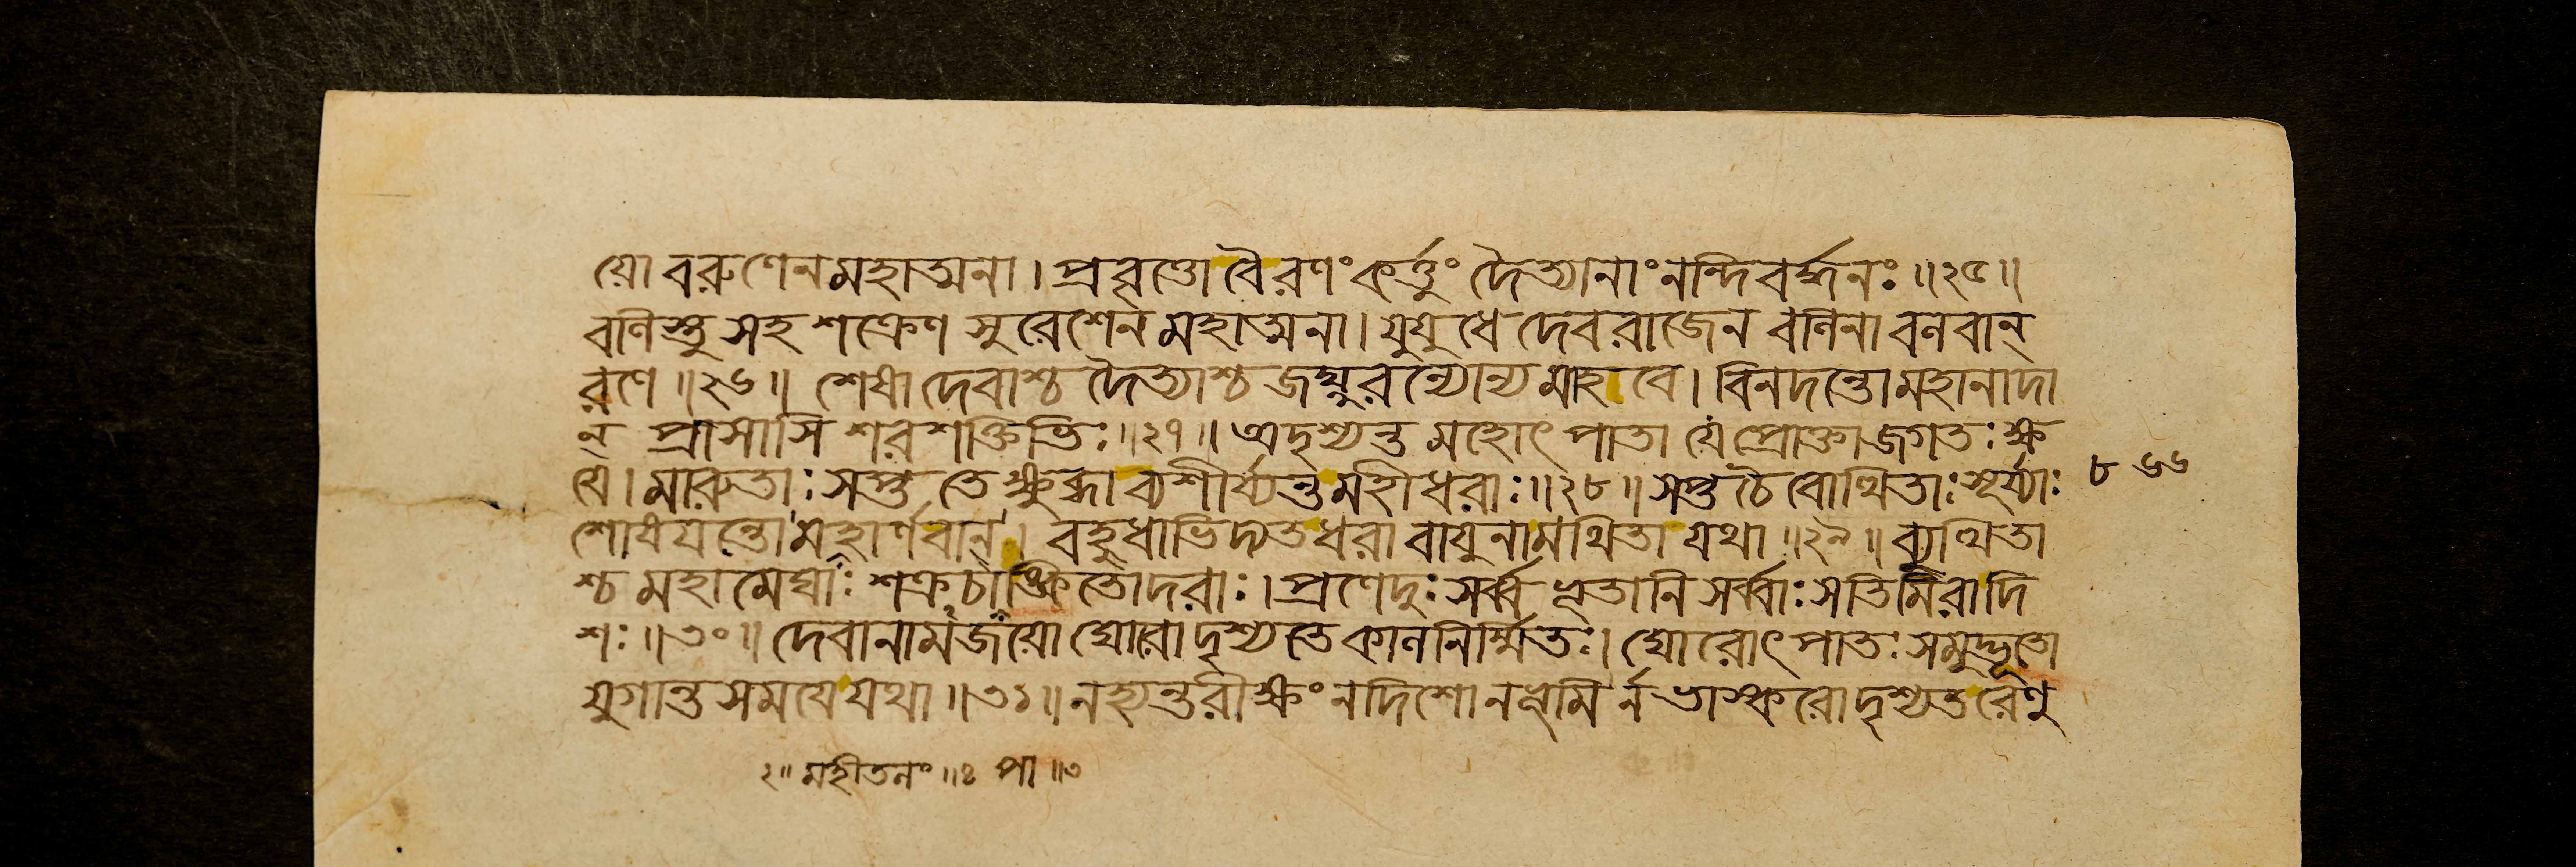 য়ো বরুণেন মহাত্মনা। প্রবৃত্তো বৈ রণং কর্ত্তুং দৈত্যানাং নন্দিবর্দ্ধনঃ॥২৫॥
বলিস্তু সহ শক্রেণ সুরেশেন মহাত্মনা। যুযুধে দেবরাজেন বলিনা বলবান্
রণে॥২৬॥ শেষা দেবাশ্চ দৈত্যাশ্চ জঘ্নুরন্যোন্যমাহবে। বিনদন্তো মহানাদা
ন্ প্রাসাসি শরশক্তিভিঃ॥২৭॥ অদৃশ্যন্ত মহোৎপাতা যে প্রোক্তা জগতঃ ক্ষ
য়ে। মারুতাঃ সপ্ত তে ক্ষুব্ধা ব্যশীর্য্যন্ত মহীধরাঃ॥২৮॥ সপ্ত চৈবোত্থিতাঃ সূর্য্যাঃ
শোষয়ন্তো মহার্ণবান্। বহুধাভিদ্যত ধরা বায়ুনা মথিতা যথা॥২৯॥ ব্যুত্থিতা
শ্চ মহামেঘাঃ শক্রচাপাঙ্কিতোদরাঃ। প্রণেদুঃ সর্ব্বভূতানি সর্ব্বাঃ সতিমিরা দি
শঃ॥৩০॥ দেবানামজয়ো ঘোরো দৃশ্যতে কালনির্ম্মিতঃ। ঘোরোৎপাতঃ সমুদ্ভূতো
যুগান্তসময়ে যথা॥৩১॥ ন হ্যন্তরীক্ষং ন দিশো ন ভূমির্ন ভাস্করো দৃশ্যত রেণু
৮ ৬৬
২॥ মহীতলং॥ঃ পা॥৩